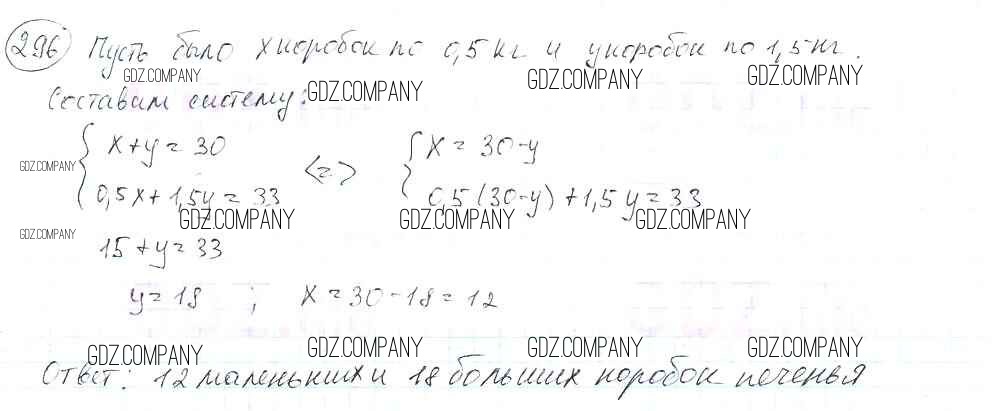 296 Пусть было x коробок по 0,5 кг и y коробок по 1,5 кг.
GDZ.COMPANY GDZ.COMPANY GDZ.COMPANY
Составим систему: GDZ.COMPANY
{ x + y = 30 <=> { x = 30 - y
GDZ.COMPANY
0,5x + 1,5y = 33 0,5(30-y) + 1,5y = 33
GDZ.COMPANY GDZ.COMPANY GDZ.COMPANY
GDZ.COMPANY
15 + y = 33
y = 18 ; x = 30 - 18 = 12
GDZ.COMPANY GDZ.COMPANY GDZ.COMPANY GDZ.COMPANY
Ответ: 12 маленьких и 18 больших коробок печенья